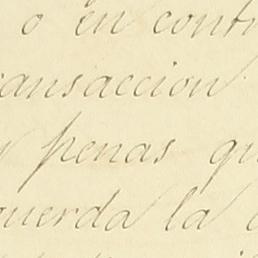 o en contr
ansaccion
penas qu
uerda la